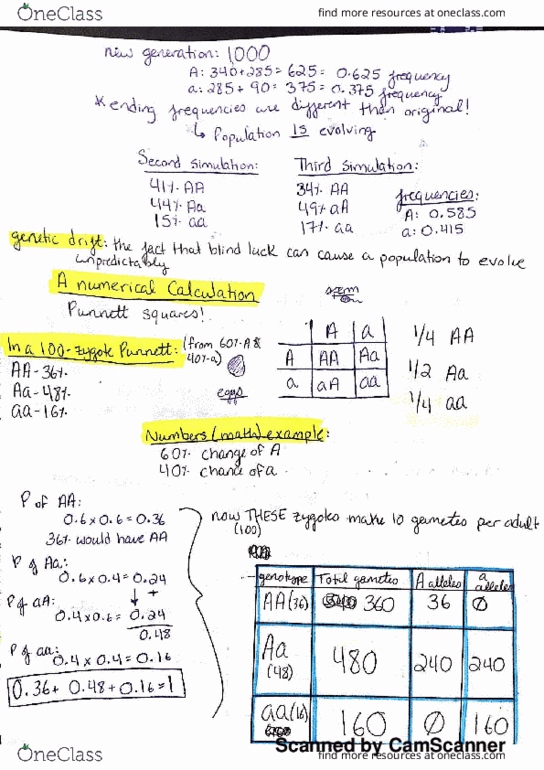 OneClass
find more resources at oneclass.com
new generation: 1000
A: 340+285 = 625 = 0.625 frequency
a: 285 + 90 = 375 = 0.375 frequency
* ending frequencies are different than original!
↳ Population IS evolving
Second simulation:
41% AA
44% Aa
15% aa
Third simulation:
34% AA
49% aA
17% aa
frequencies:
A: 0.585
a: 0.415
genetic drift: the fact that blind luck can cause a population to evolve
unpredictably
A numerical Calculation
Punnett squares!
sperm
A a
A AA Aa
a aA aa
eggs
1/4 AA
1/2 Aa
1/4 aa
In a 100-zygote Punnett: (from 60% A &
40% a)
AA - 36%
Aa - 48%
aa - 16%
Numbers (math) example:
60% change of A
40% chance of a
P of AA:
0.6 x 0.6 = 0.36
36% would have AA
P of Aa:
0.6 x 0.4 = 0.24
↓ +
P of aA:
0.4 x 0.6 = 0.24
0.48
P of aa:
0.4 x 0.4 = 0.16
0.36 + 0.48 + 0.16 = 1
now THESE zygotes make 10 gametes per adult
(100)
genotype Total gametes A alleles a alleles
AA (36) 360 36 Ø
Aa (48) 480 240 240
aa (16) 160 Ø 160
Scanned by CamScanner
OneClass
find more resources at oneclass.com